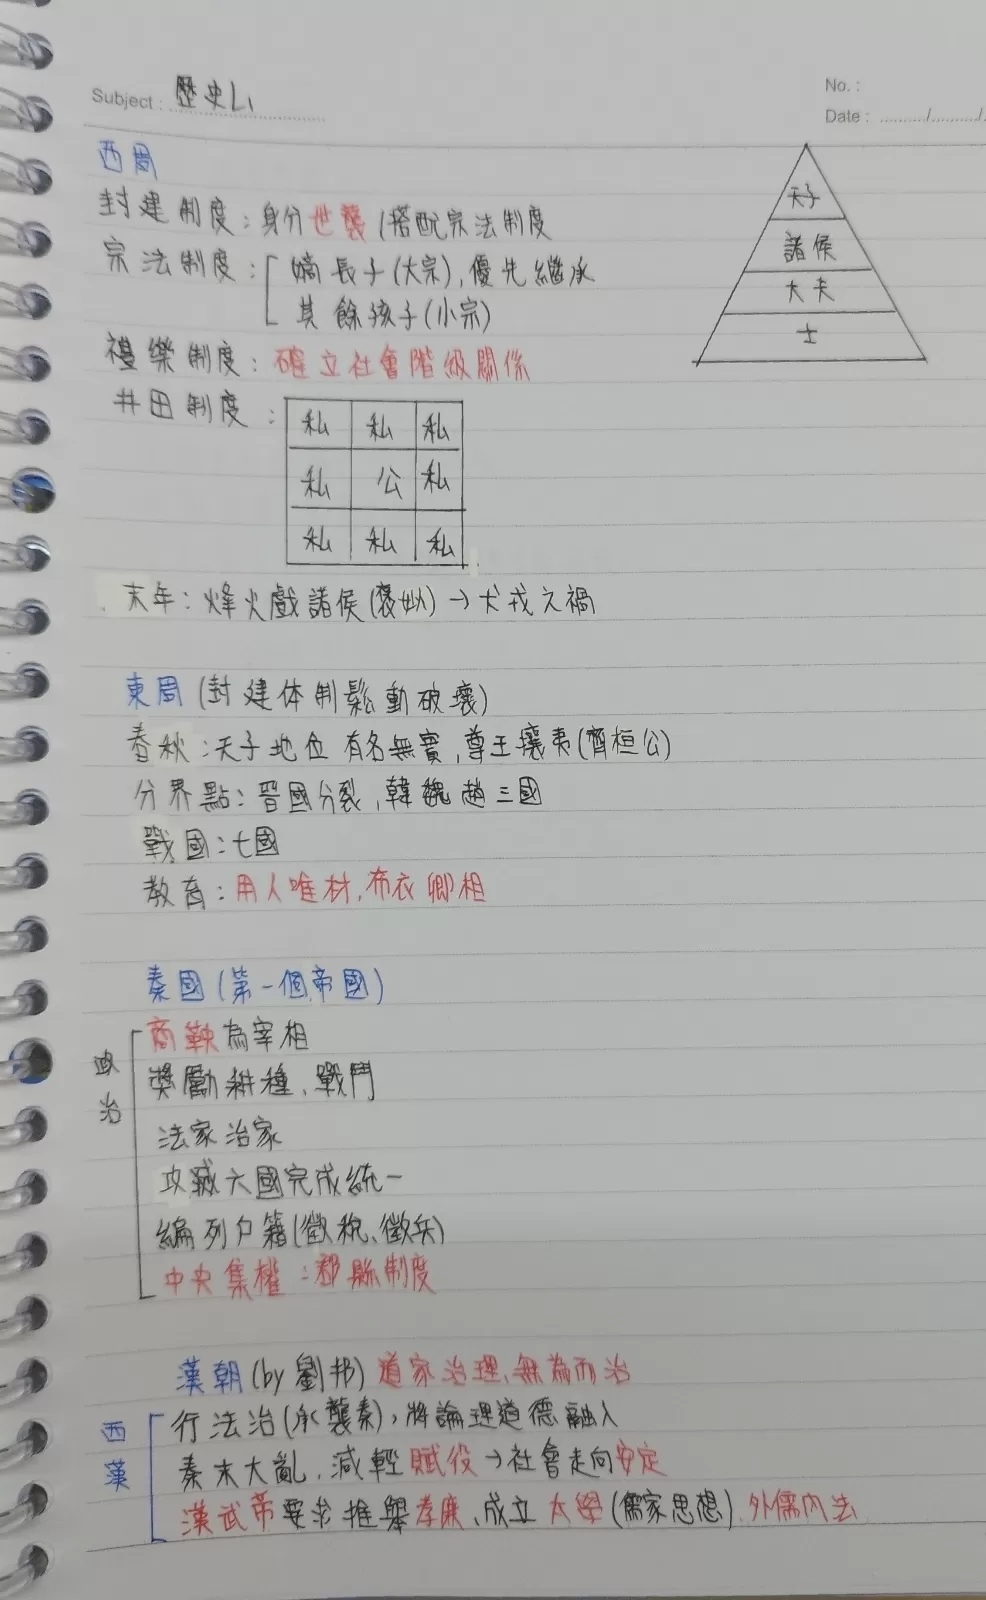 Subject: 歷史L1
No.:
Date: ........./........./.
西周
封建制度:身分世襲/搭配宗法制度
宗法制度: 嫡長子(大宗),優先繼承
其餘孩子(小宗)
禮樂制度: 確立社會階級關係
井田制度:
私 私 私
私 公 私
私 私 私
天子
諸侯
大夫
士
末年: 烽火戲諸侯(褒姒)→犬戎之禍
東周(封建体制鬆動破壞)
春秋:天子地位有名無實,尊王攘夷(齊桓公)
分界點:晉國分裂,韓魏趙三國
戰國:七國
教育:用人唯材,布衣卿相
秦國(第一個帝國)
政治
商鞅為宰相
獎勵耕種、戰鬥
法家治家
攻滅六國完成統一
編列戶籍(徵稅、徵兵)
中央集權:郡縣制度
漢朝(by劉邦)道家治理、無為而治
西漢
行法治(承襲秦),將論理道德融入
秦末大亂,減輕賦役→社會走向安定
漢武帝要求推舉孝廉、成立太學(儒家思想).外儒內法